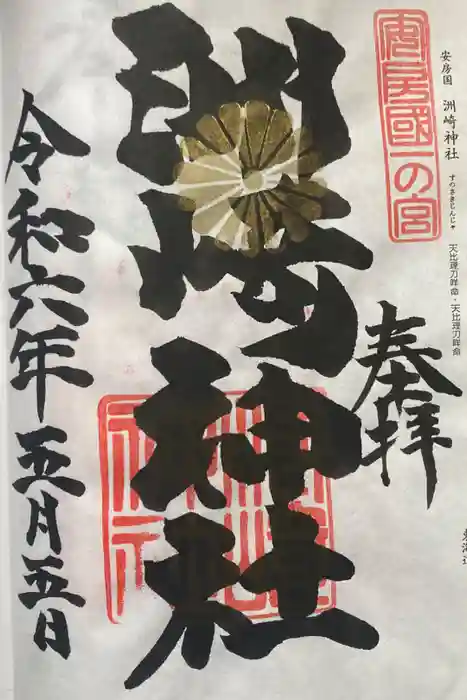 安房国 洲崎神社
すのさきじんじゃ
天比理刀咩命・天比理刀咩命
安房國一の宮
奉拝
洲崎神社
令和六年五月五日